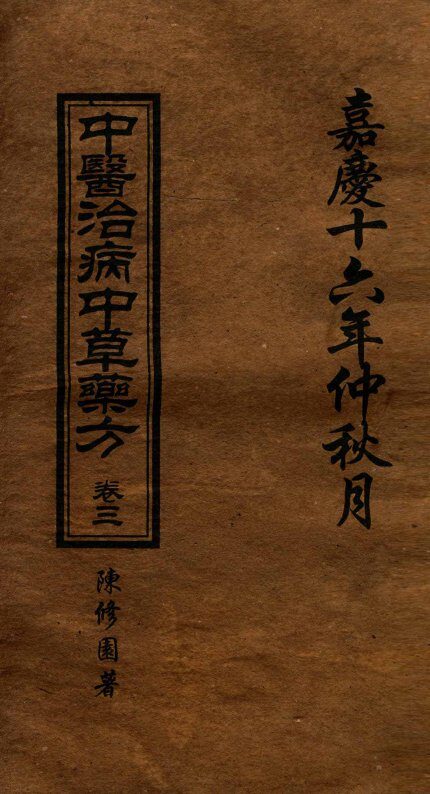 嘉慶十六年仲秋月
中醫治病中草藥方 卷三
陳修園著